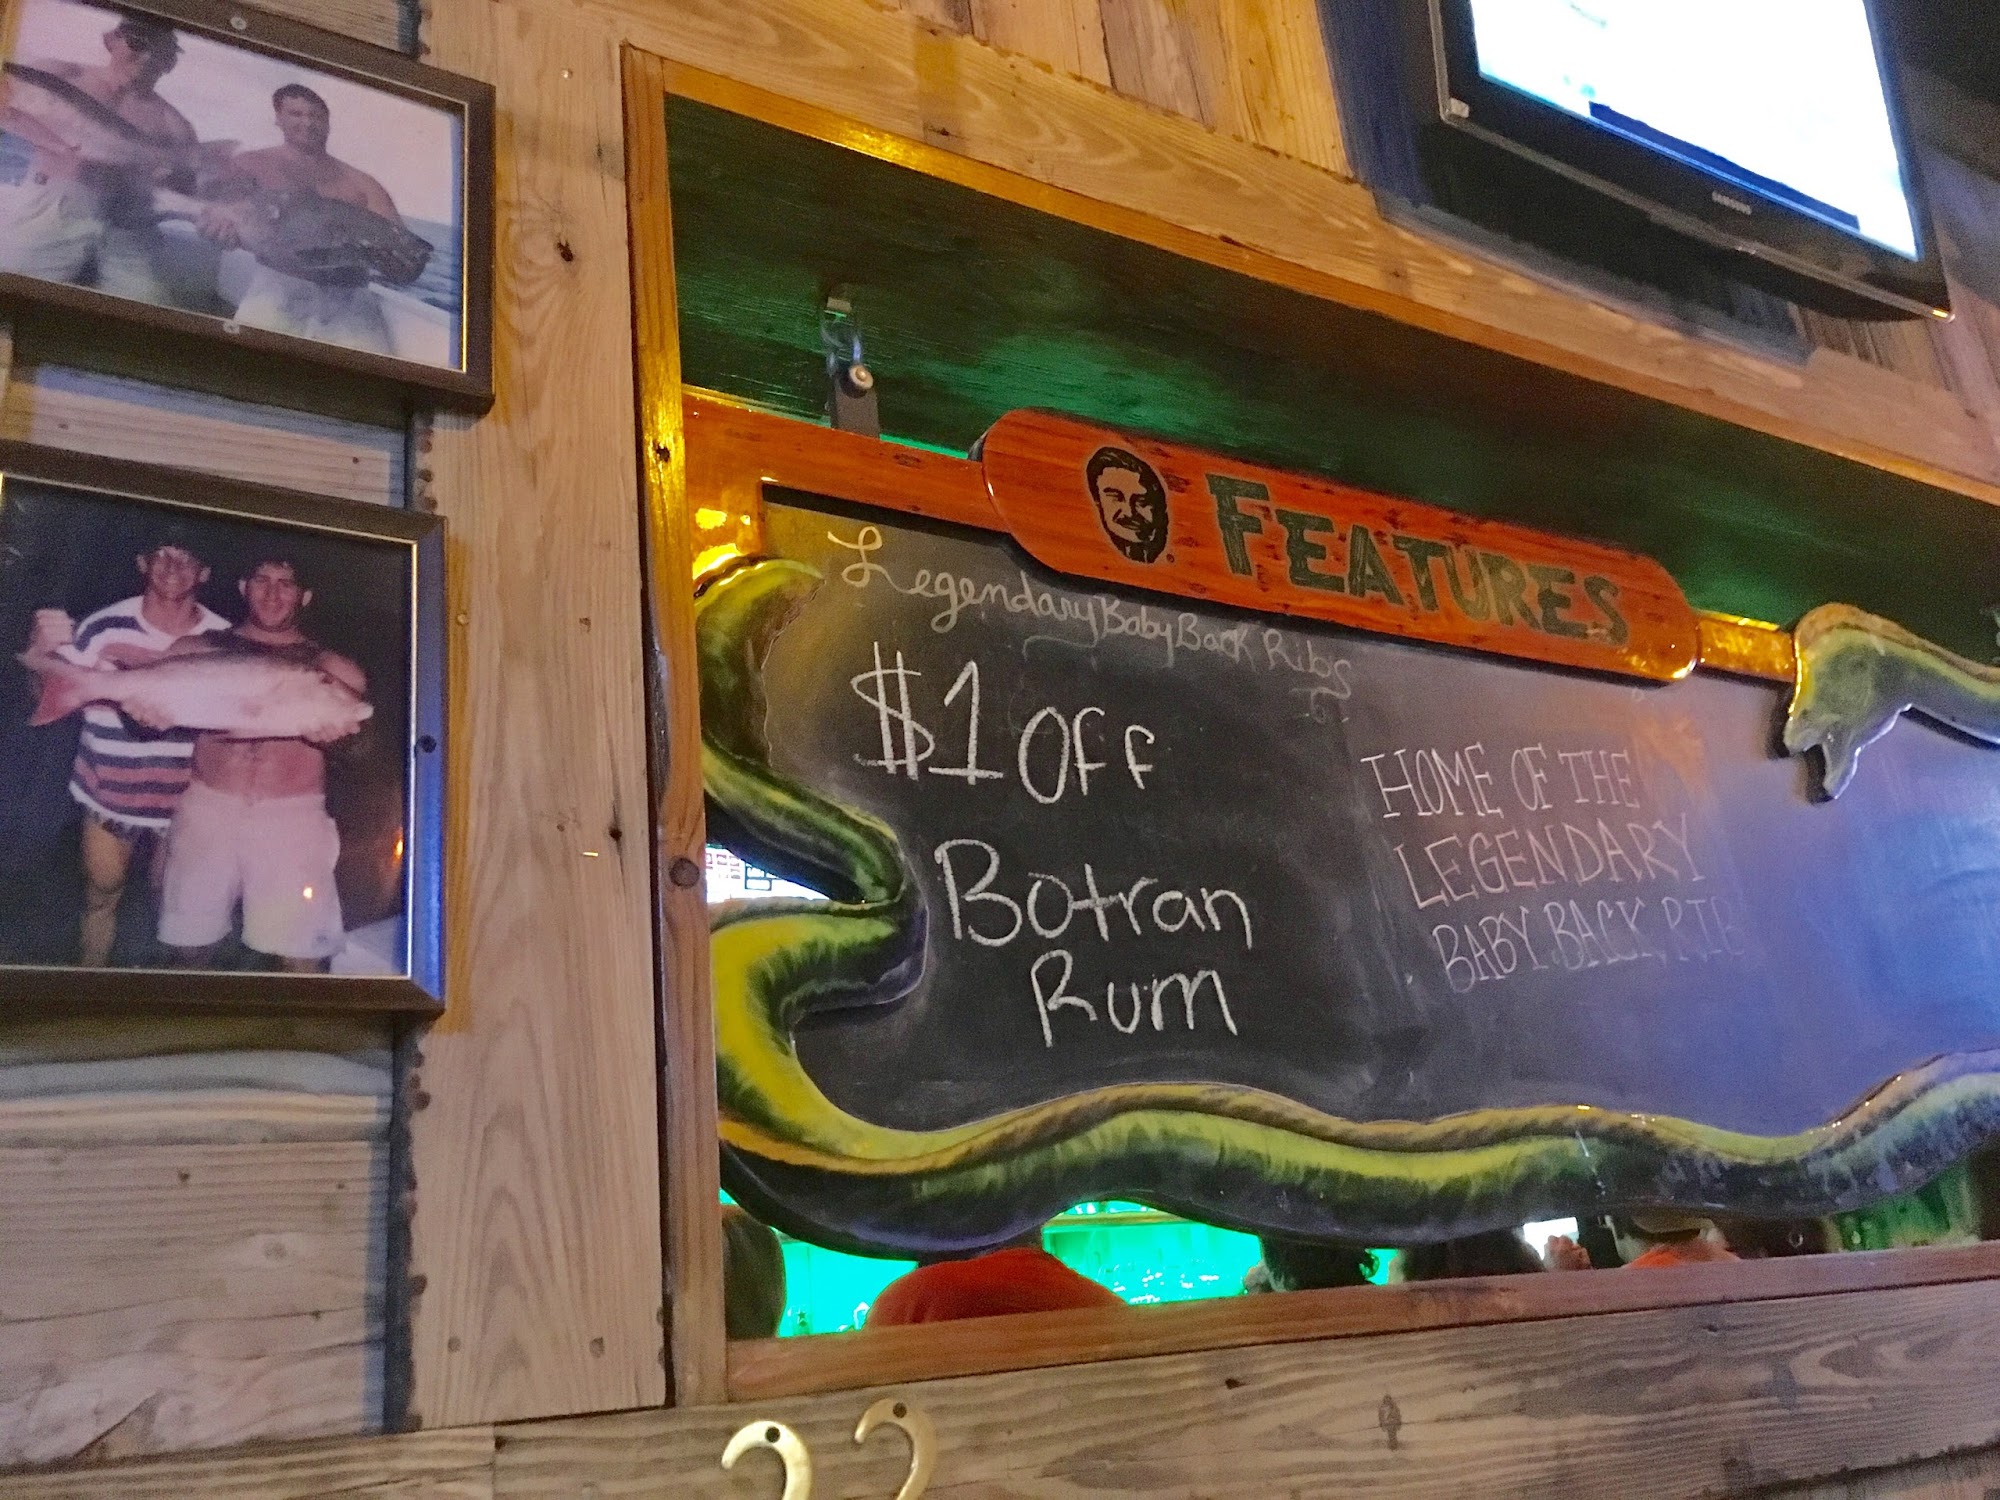 SAMSUNG
FEATURES
Legendary Baby Back Ribs
$1 Off
Botran
Rum
HOME OF THE
LEGENDARY
BABY BACK RIB
22